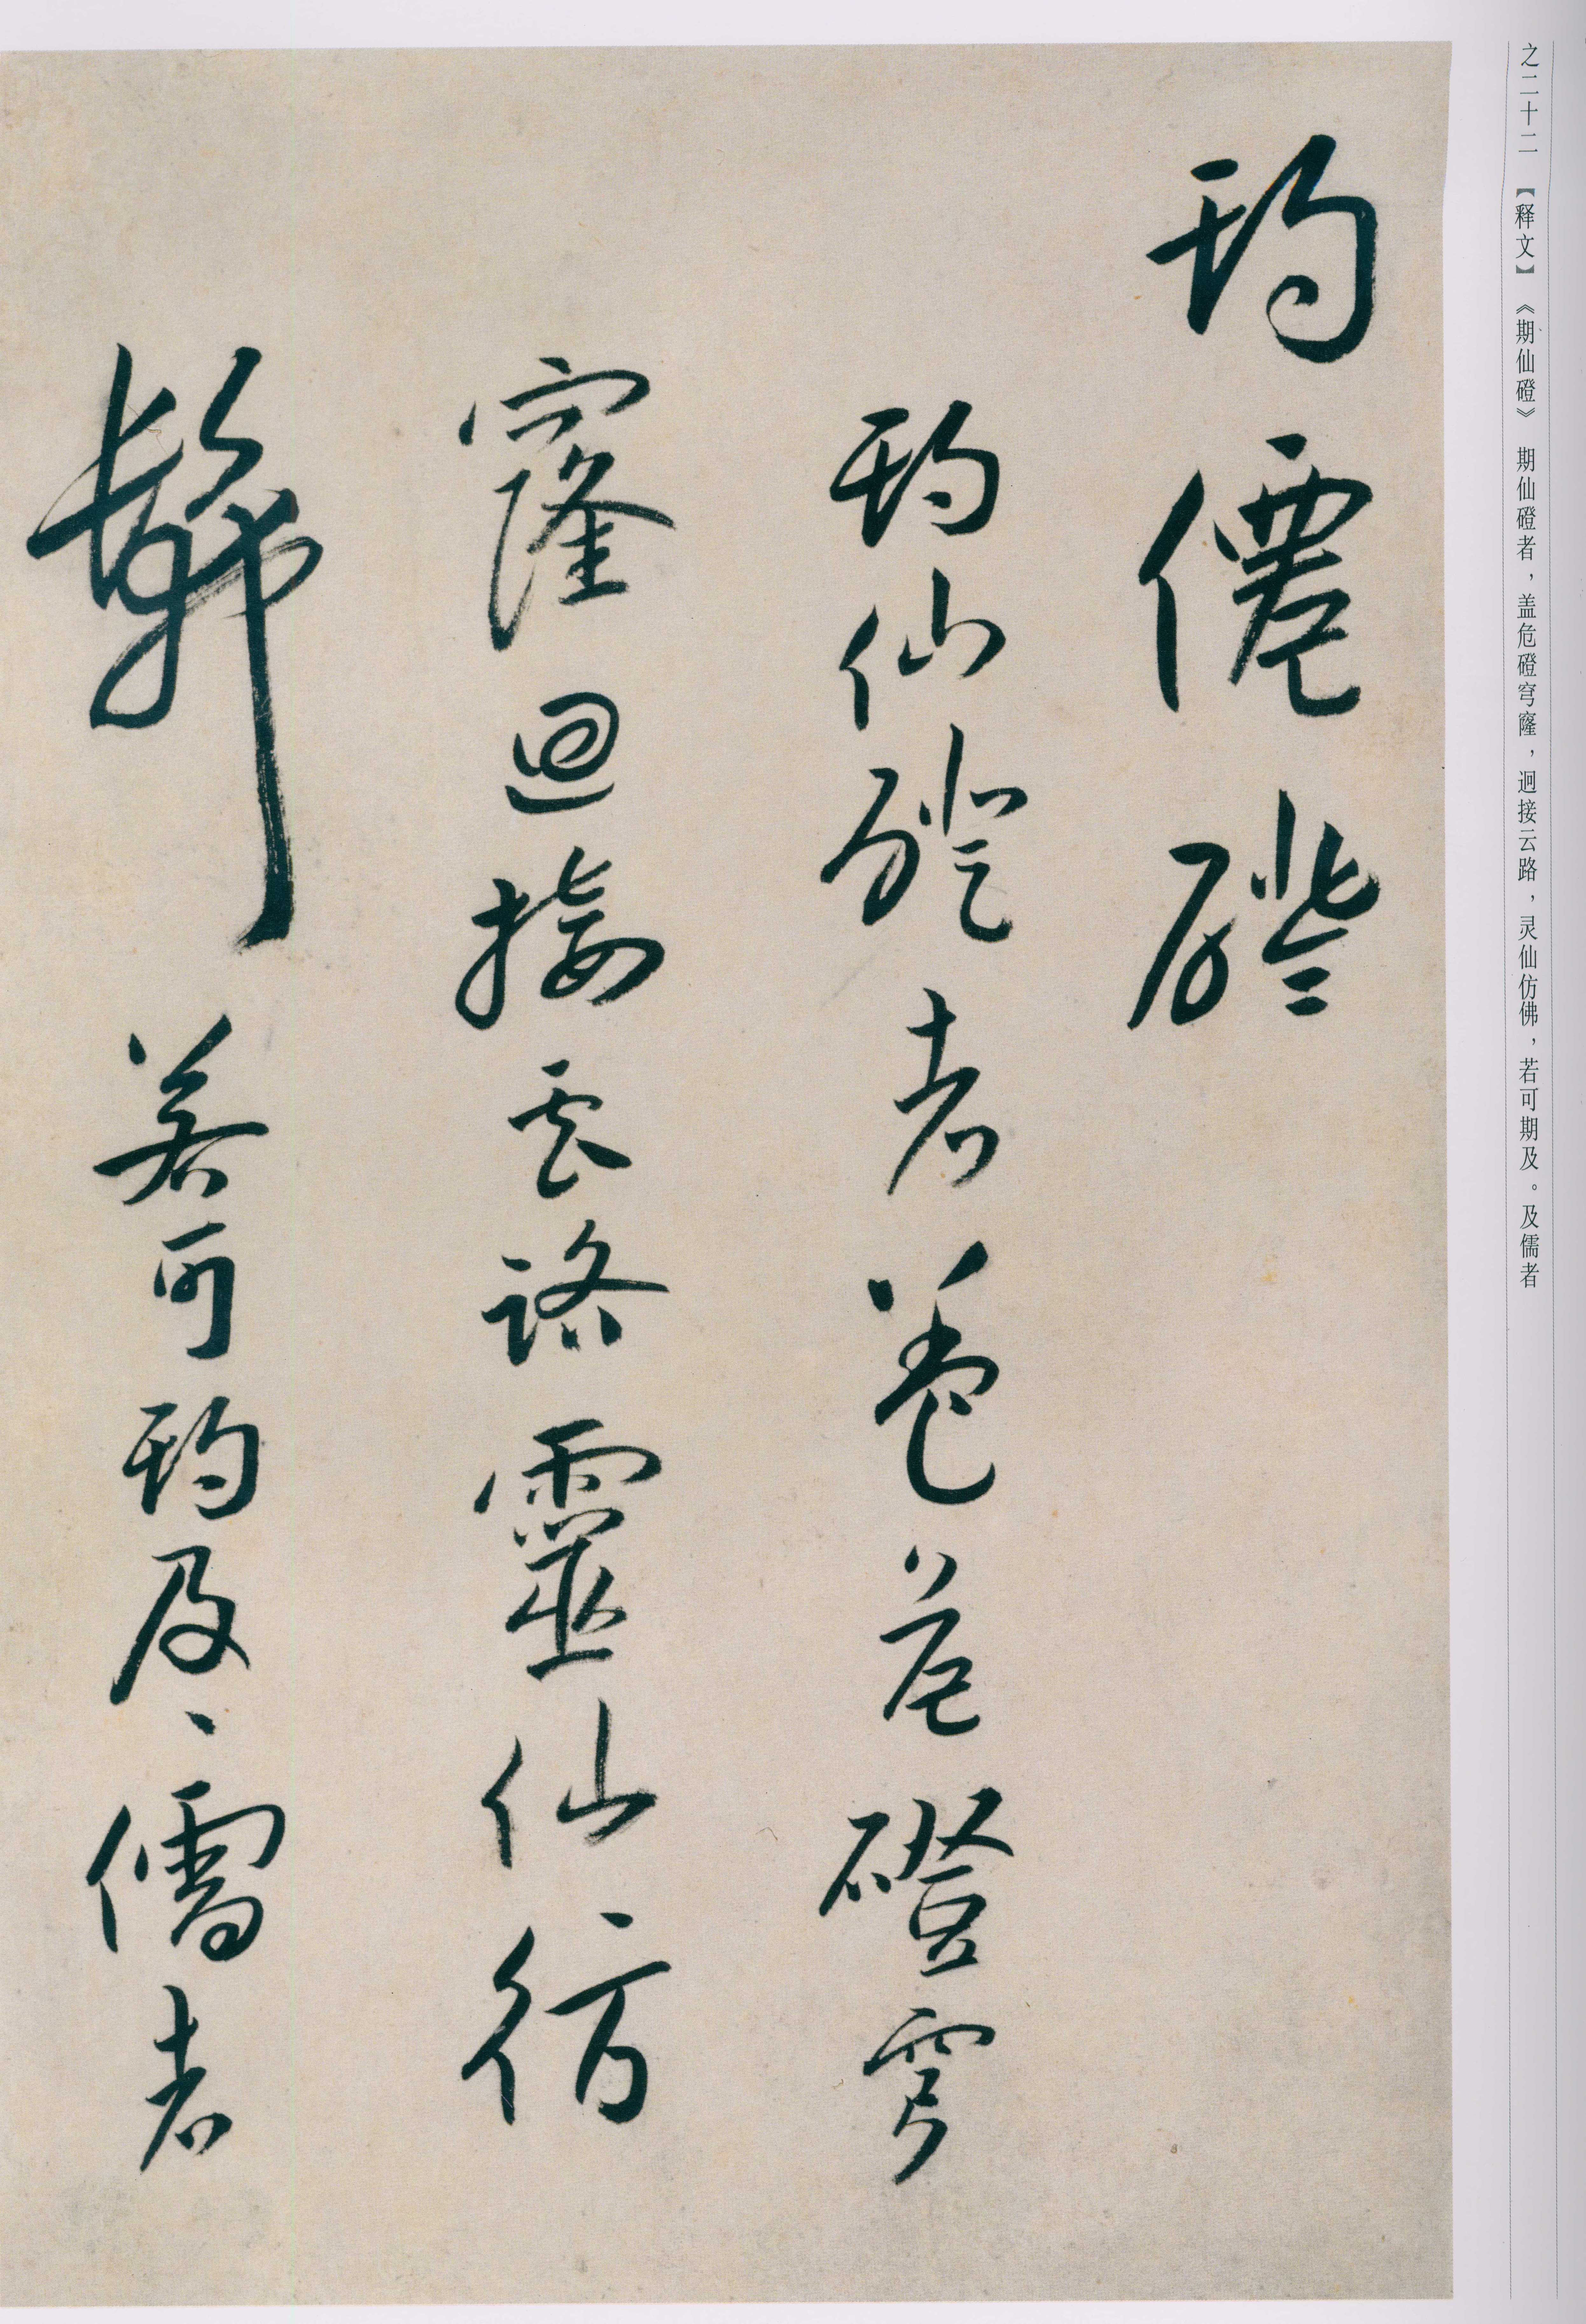 之二十二 【释文】 《期仙磴》 期仙磴者，盖危磴穹窿，迥接云路，灵仙仿佛，若可期及。及儒者
期僊磴
期仙磴者蓋危磴穹
窿迴接雲路靈仙彷
髴若可期及、儒者